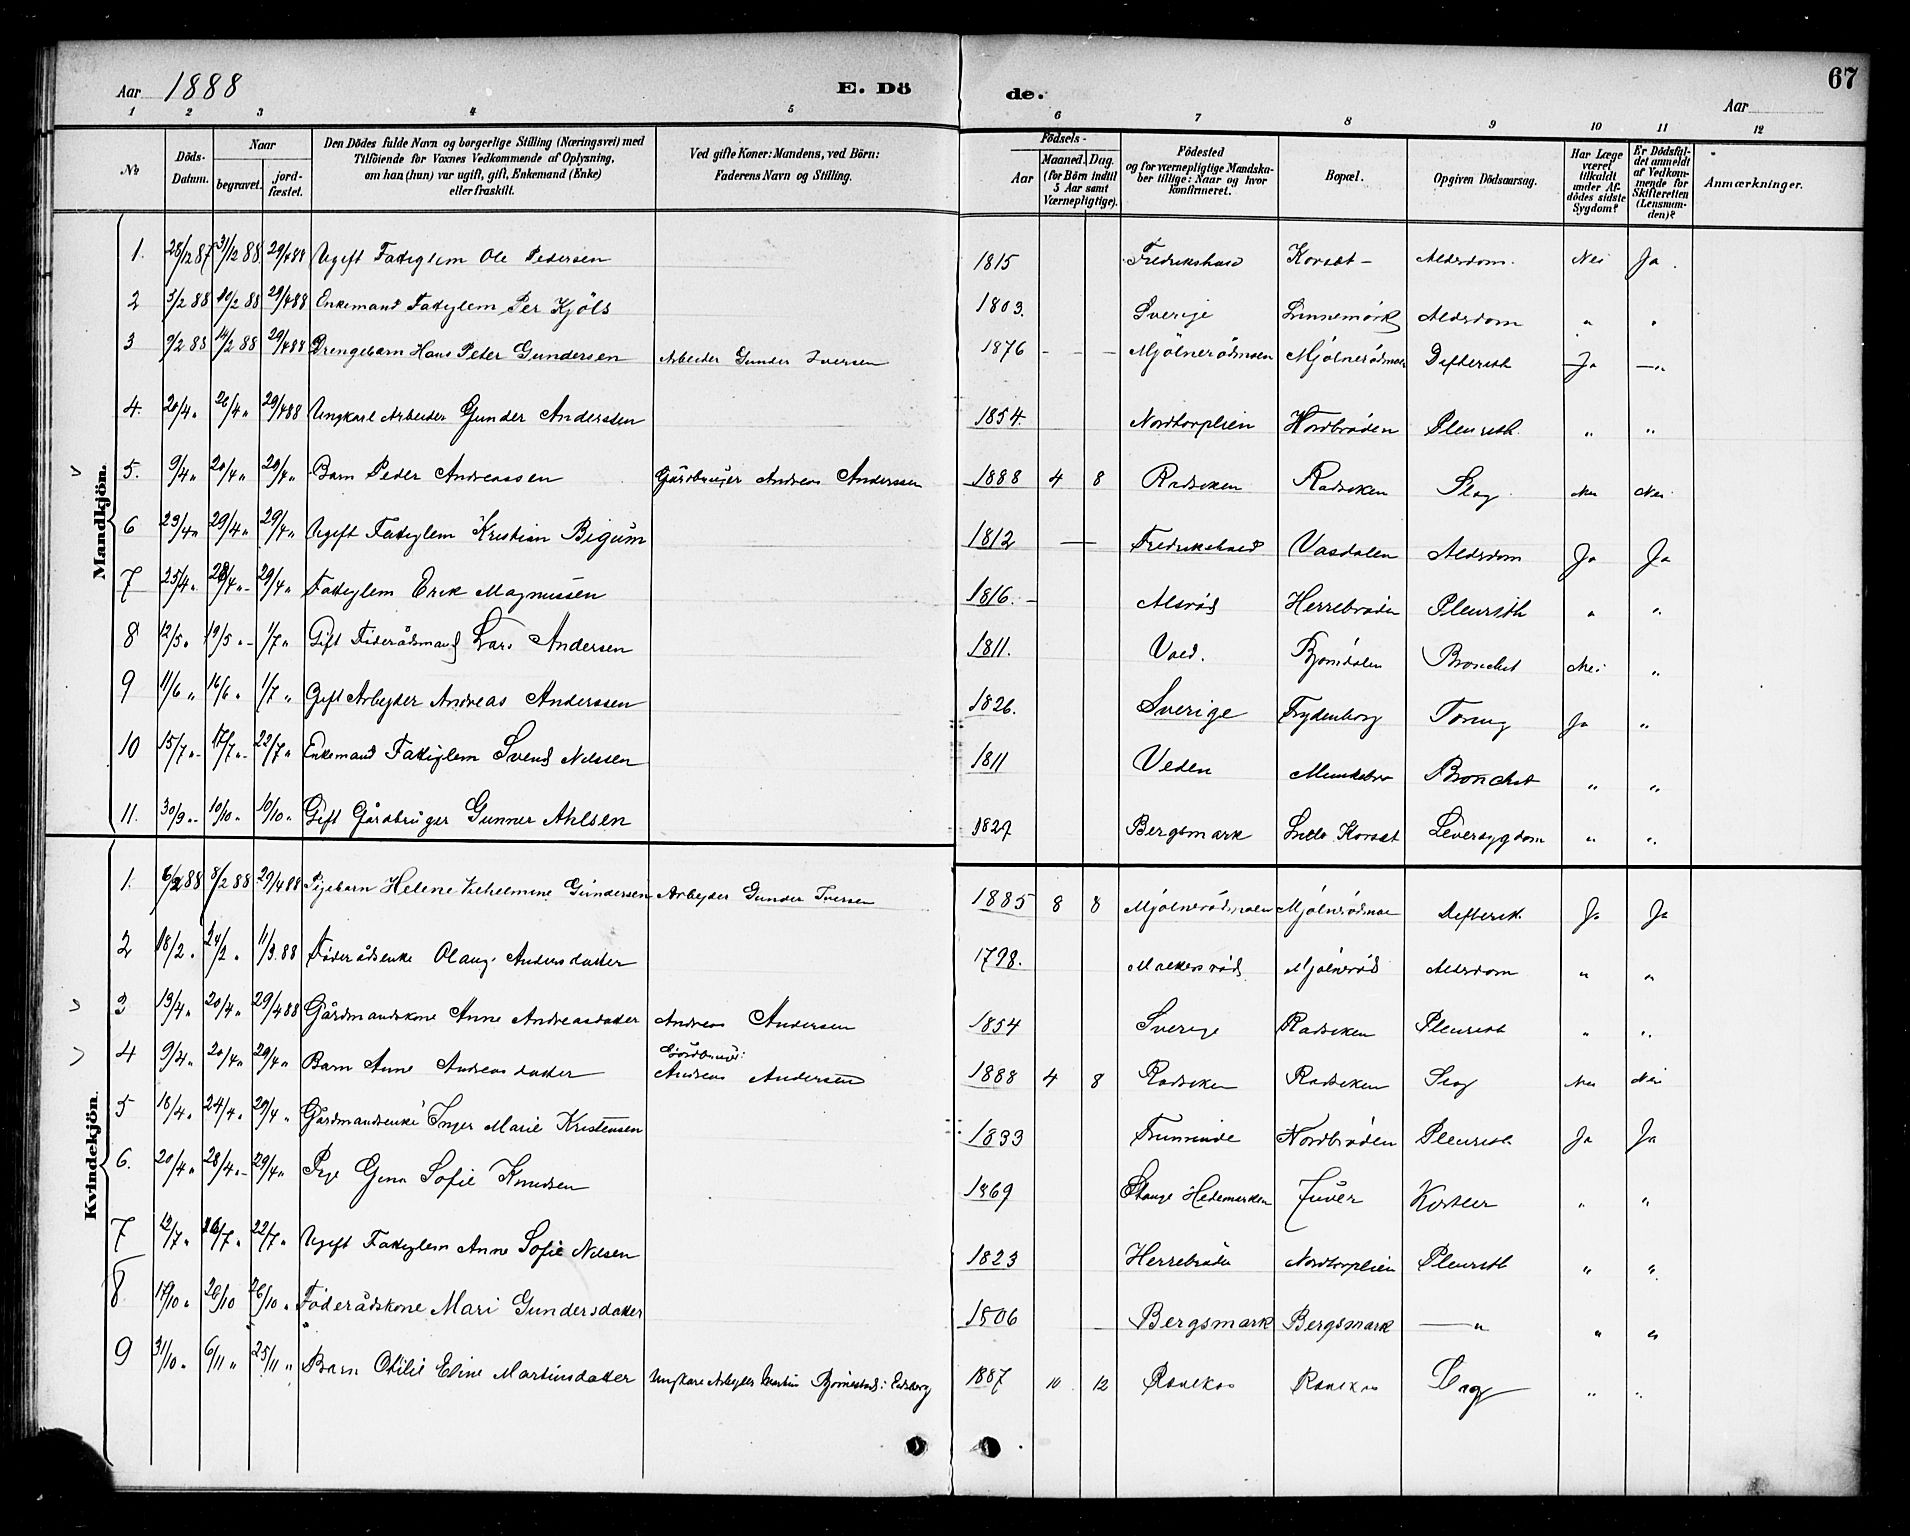 Aar 1888 E. Dö de. Aar 67
1 2 3 4 5 6 7 8 9 10 11 12
No
Döds-Datum.
Naar
begravet. jord-fæstet.
Den Dödes fulde Navn og borgerlige Stilling (Næringsvei) med
Tilföiende for Voxnes Vedkommende af Oplysning,
om han (hun) var ugift, gift, Enkemand (Enke)
eller fraskilt.
Ved gifte Koner: Mandens, ved Börn:
Faderens Navn og Stilling.
Födsels-
Aar Maaned. Dag.
(for Börn indtil
5 Aar samt
Værnepligtige).
Födested
og for værnepligtige Mandska-
ber tillige: Naar og hvor
konfirmeret.
Bopæl.
Opgiven Dödsaarsag.
Har Læge
været
tilkaldt
under Af-
dödes sidste
Sygdom?
Er Dödsfal-
det anmeldt
af Vedkom-
mende for
Skifteretten
(Lensman-
den)?
Anmærkninger.
Mandkjön.
1. 28/12 87 31/12 88 29/4 88 Ugift Fattiglem Ole Pedersen 1815 Fredrikshald Korsæt Alderdom. Nei Ja.
2 3/2 88 10/2 88 29/4 88 Enkemand Fattiglem Per Kjöls 1803. Sverige Linnemörk Alderdom " "
3 9/2 88 14/2 88 29/4 88 Drengebarn Hans Peter Gundersen Arbeider Gunder Iversen 1876 - - - Mjölnerödmoen Mjölnerödmoen Difterith Ja "
4. 20/4 " 26/4 " 29/4 88 Ungkarl Arbeider Gunder Anderssen 1854. Nordtorpleien Nordbröden Pleurith. " "
5. 9/4 " 20/4 " 29/4 " Barn Peder Andreassen Gårdbruger Andreas Anderssen 1888 4 8 Radseken Radseken Slag. Nei Nei
6 23/4 " 29/4 " 29/4 " Ugift Fattiglem Kristian Bigum 1812 — Fredrikshald Vasdalen Alderdom Ja Ja
7 25/4 " 28/4 " 29/4 " Fattiglem Erik Magnussen 1816. Alsröd Herrebröden Pleurith " "
8 12/5 " 19/5 " 1/7 " Gift Föderådsmand Lars Andersen 1811. Vold. Bjørndalen Bronchit Nei "
9 11/6 " 16/6 " 1/7 " Gift Arbeyder Andreas Anderssen 1826. Sverige Frydenborg Toring Ja "
10 15/7 " 17/7 " 22/7 " Enkemand Fattiglem Svend Nilssen 1811 Veden Munkebro Bronchit " "
11. 30/9 " 10/10 " 10/10 " Gift Gårdbruger Gunner Ahlsen 1829 Bergsmark Lille Korsæt Leversygdom " "
Kvindekjön.
1. 6/2 88 8/2 88 29/4 88 Pigebarn Helene Vilhelmine Gundersen Arbeyder Gunder Iversen 1885 8 8 Mjölnerödmoen Mjölnerödmoe Difterith Ja Ja
2 18/2 " 24/2 " 11/3 88 Föderådsenke Olaug Andersdatter 1798. Mjölneröd Alderdom " "
3 13/4 " 20/4 " 29/4 88 Gårdmandskone Anne Andreasdatter Andreas Andersen 1854 Sverige Radseken Pleurith " "
4 9/4 " 20/4 " 29/4 " Barn Anne Andreasdatter Gårdbruger: Andreas Andersen 1888 4 8 Radseken Radseken Slag Nei Nei
5 18/4 " 24/4 " 29/4 " Gårdmandsenke Inger Marie Kristensen 1833 Nordbröden Pleurith Ja Ja
6. 20/4 " 28/4 " 29/4 " Pige Gina Sofie Knudsen 1869 Stange Hedemarken " "
7 12/7 " 16/7 " 22/7 " Ugift Fattiglem Anne Sofie Nilsen 1823 Herrebröden Nordtorpleien Pleurith " "
8. 17/10 " 26/10 26/10 " Föderådskone Mari Gundersdatter 1806 - Bergsmark Bergsmark — " " "
9 31/10 " 6/11 " 25/11 " Barn Otilie Eline Martinsdatter Ungkarl Arbeyder Martin Björnestad i Eidsberg 1887 10 12 Ranekas Ranekas Slag " "